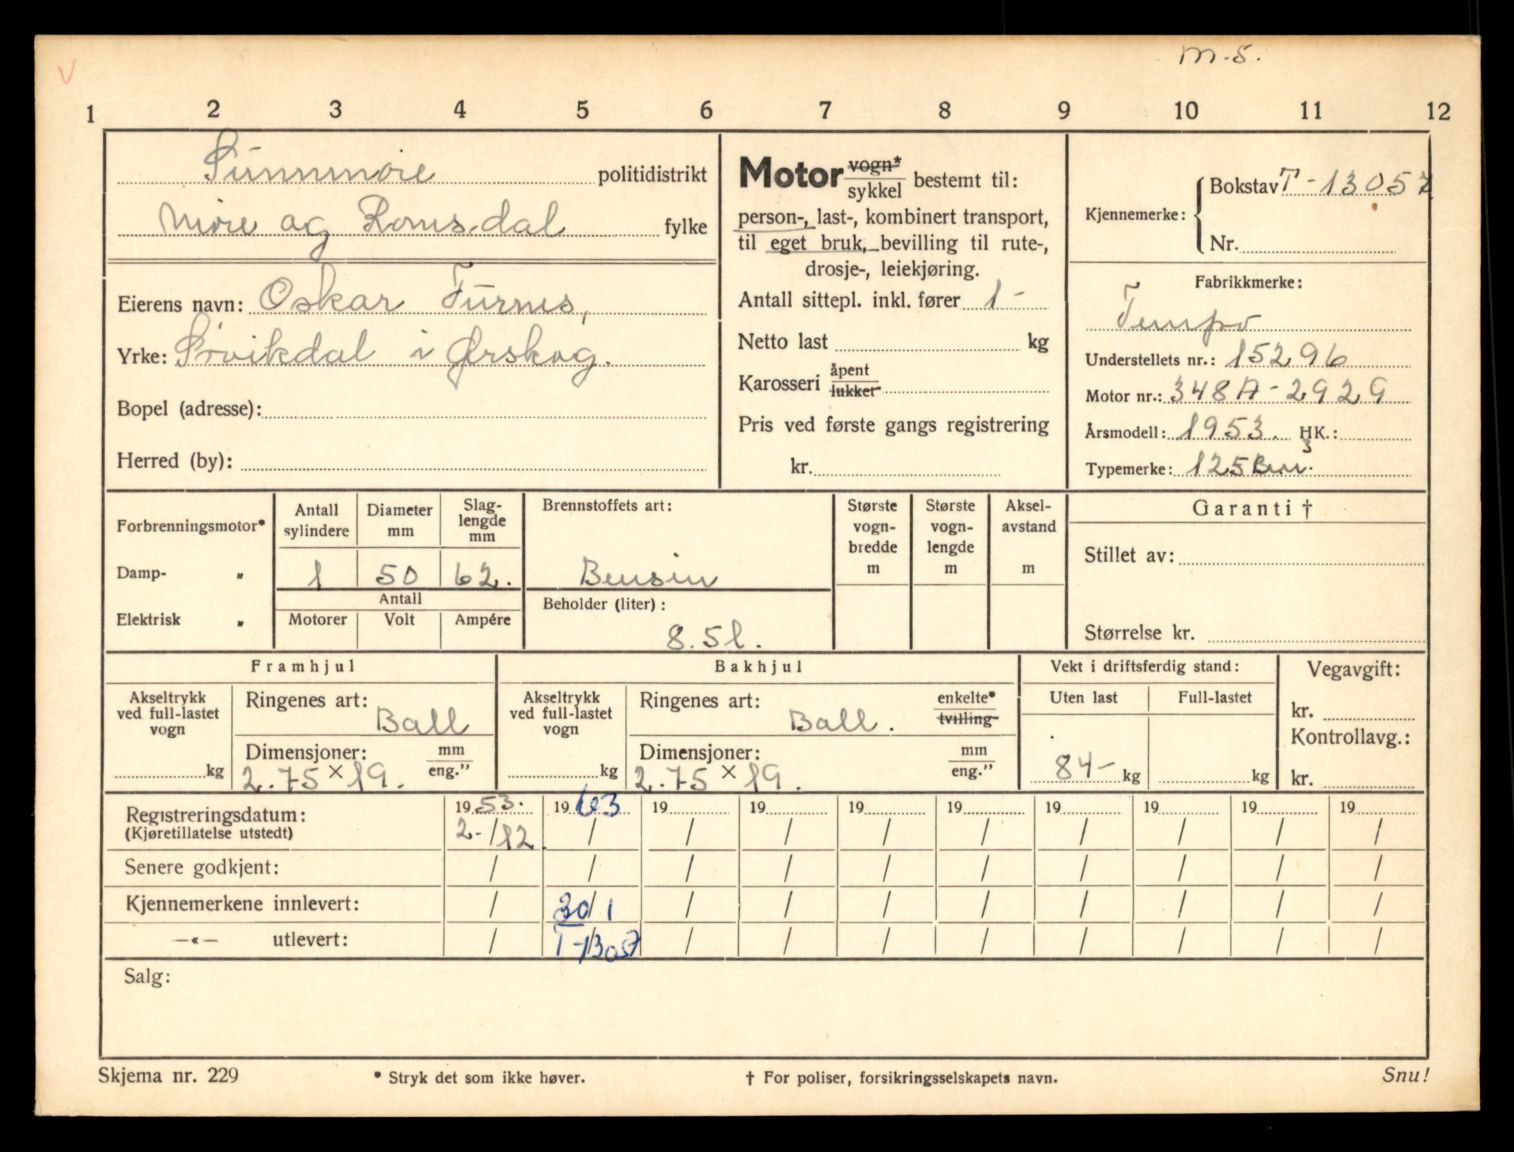 V
m.s.
1 2 3 4 5 6 7 8 9 10 11 12
Sunnmøre politidistrikt
Møre og Romsdal fylke
Eierens navn: Oskar Furnes,
Yrke: Søvikdal i Ørskog.
Bopel (adresse):
Herred (by):
Motor vogn*
sykkel bestemt til:
person-, last-, kombinert transport,
til eget bruk, bevilling til rute-,
drosje-, leiekjøring.
Antall sittepl. inkl. fører 1-
Netto last kg
Karosseri åpent
lukket
Pris ved første gangs registrering
kr.
Kjennemerke: Bokstav T-13057
Nr.
Fabrikkmerke:
Tempo
Understellets nr.: 15296
Motor nr.: 348A-2929
Årsmodell: 1953. HK.: 3
Typemerke: 125
Forbrenningsmotor*
Damp- „
Elektrisk „
Antall sylindere Diameter mm Slaglengde mm
1 50 62.
Antall
Motorer Volt Ampére
Brennstoffets art:
Bensin
Beholder (liter):
8.5l.
Største vognbredde m
Største vognlengde m
Akselavstand m
Garanti †
Stillet av:
Størrelse kr.
Framhjul
Akseltrykk ved full-lastet vogn
kg
Ringenes art:
Ball
Dimensjoner: mm
eng."
2.75 x 19.
Bakhjul
Akseltrykk ved full-lastet vogn
kg
Ringenes art: enkelte*
Ball. tvilling
Dimensjoner: mm
eng."
2.75 x 19.
Vekt i driftsferdig stand:
Uten last Full-lastet
84- kg kg
Vegavgift:
kr.
Kontrollavg.:
kr.
Registreringsdatum: 19 53. 19 63 19 19 19 19 19 19 19 19
(Kjøretillatelse utstedt) 2-/12. / / / / / / / / /
Senere godkjent: / / / / / / / / / /
Kjennemerkene innlevert: / 30/1 / / / / / / / /
—«— utlevert: / T-13057 / / / / / / / /
Salg:
Skjema nr. 229 * Stryk det som ikke høver. † For poliser, forsikringsselskapets navn. Snu!